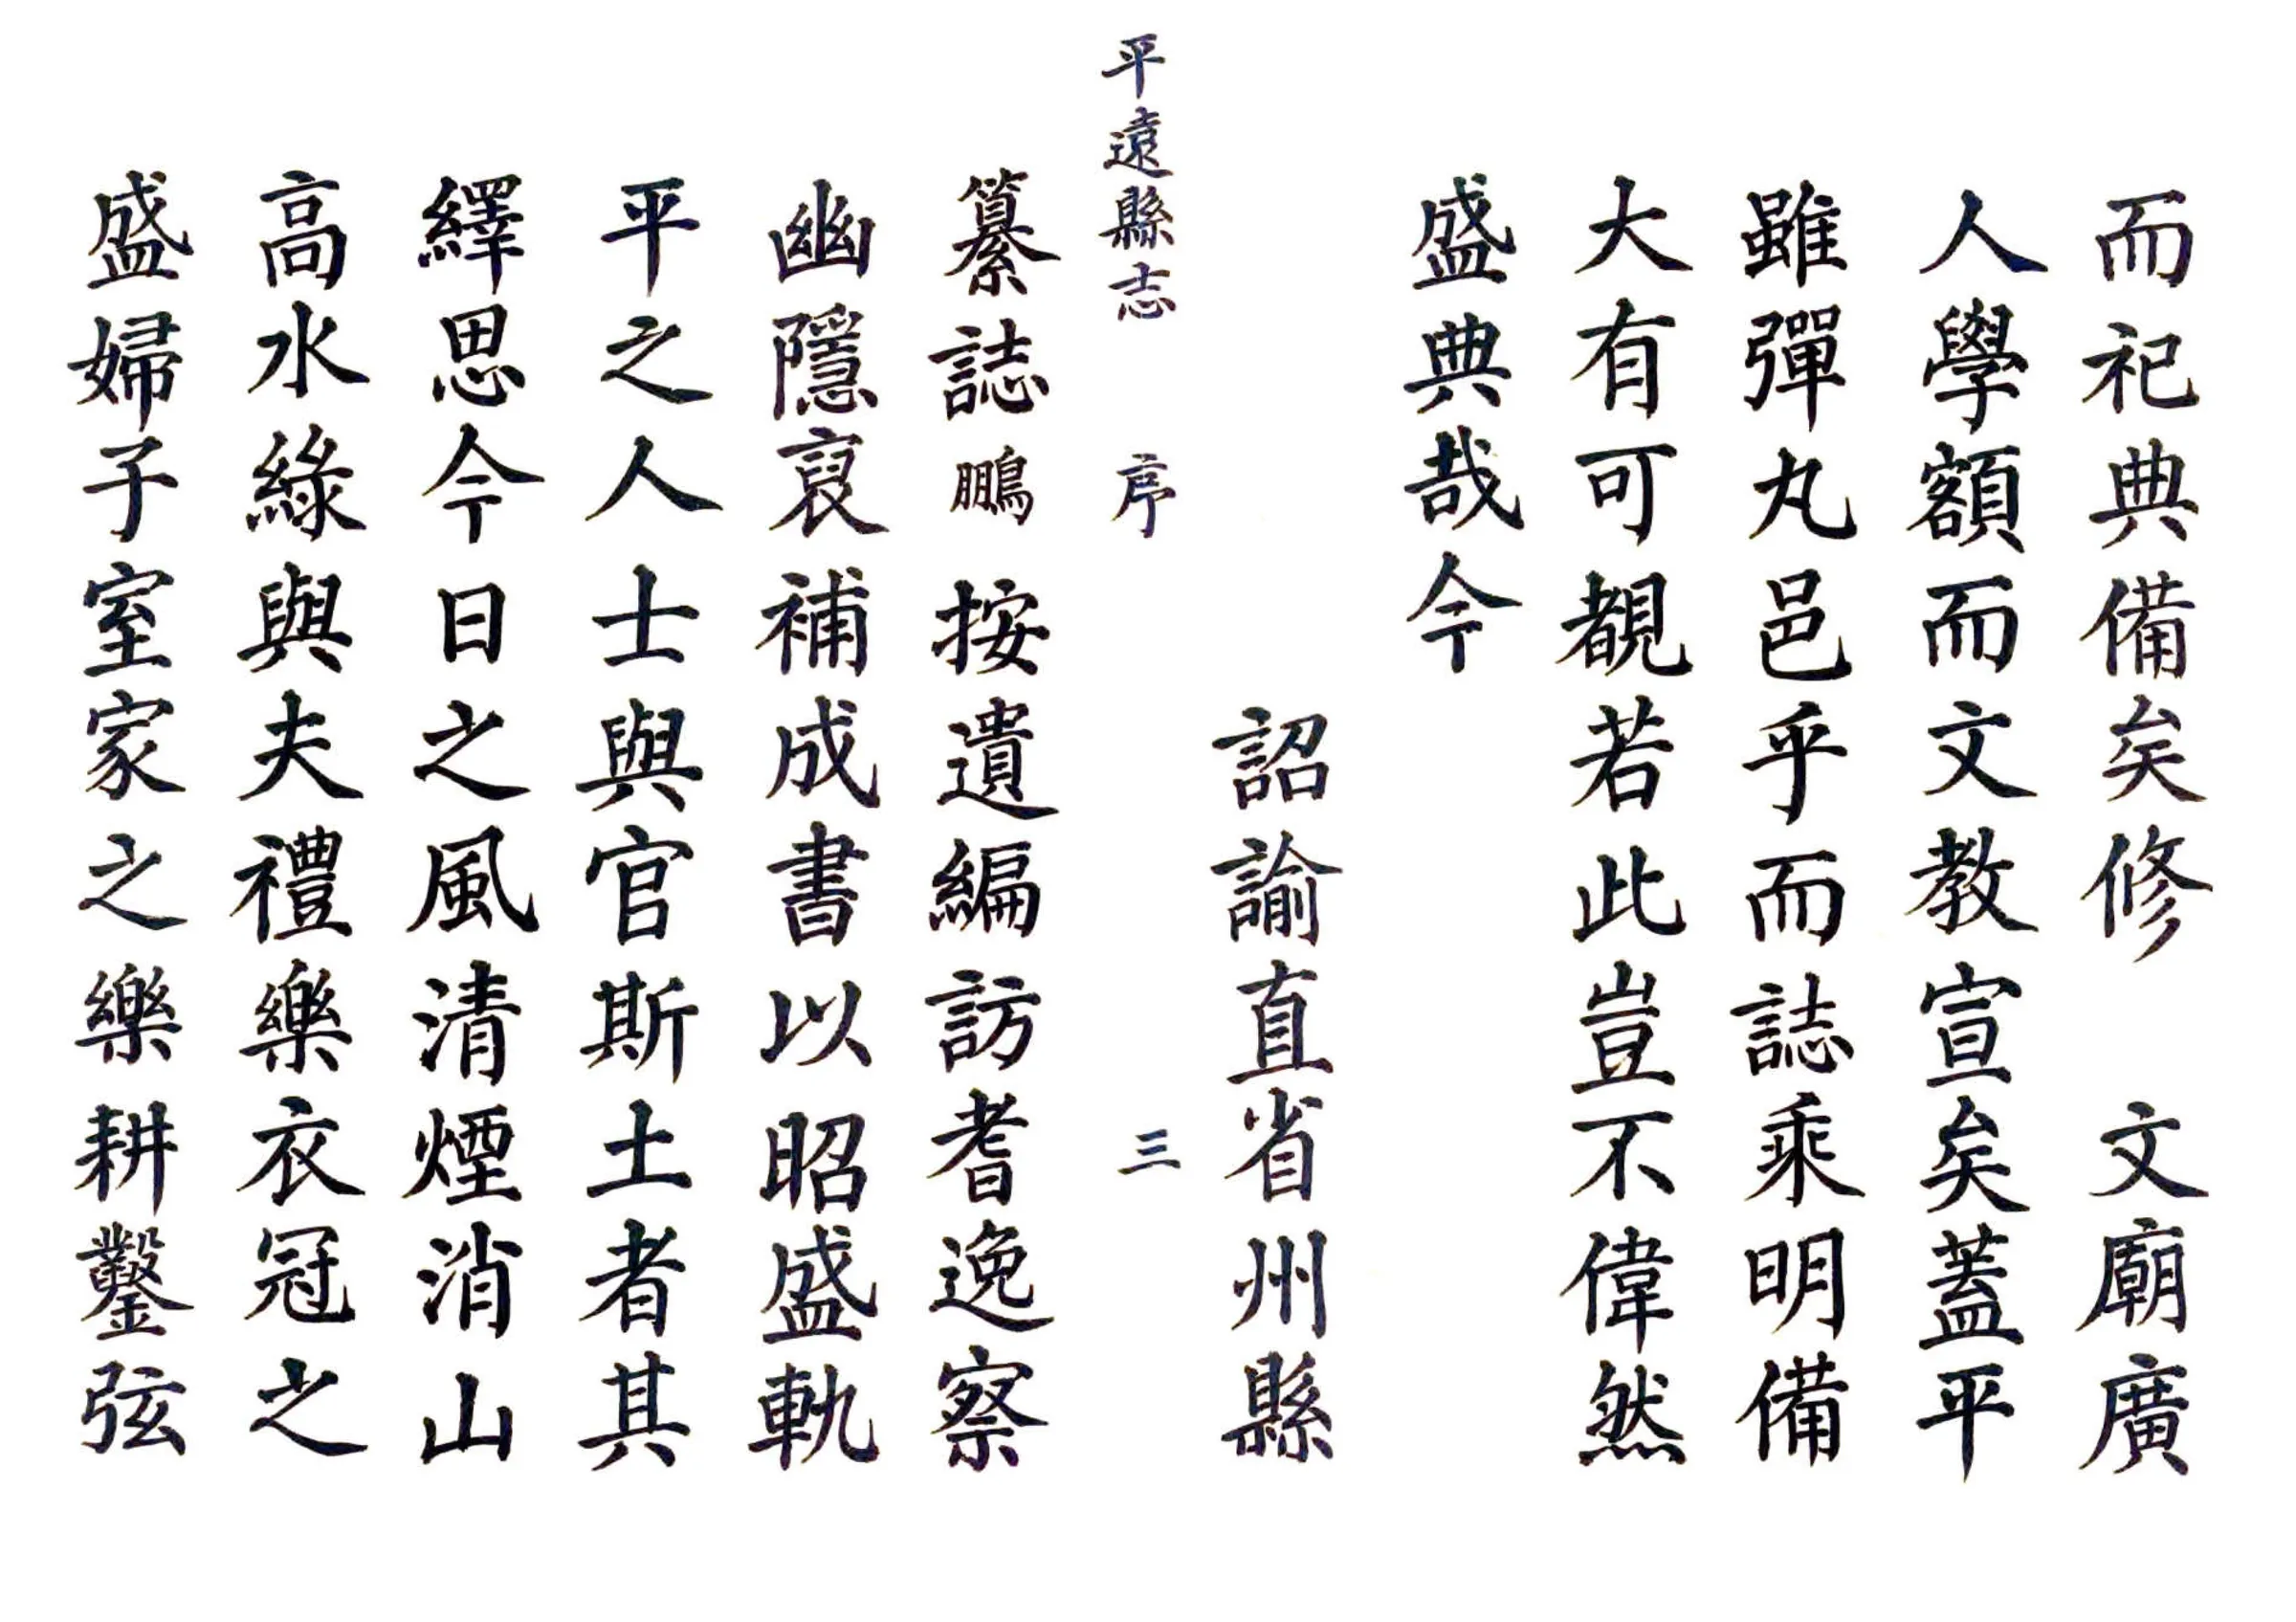 而祀典備矣修　文廟廣
人學額而文教宣矣蓋平
雖彈丸邑乎而誌乘明備
大有可覩若此豈不偉然
盛典哉今
詔諭直省州縣
平遠縣志　序　三
纂誌鵬按遺編訪耆逸察
幽隱裒補成書以昭盛軌
平之人士與官斯土者其
繹思今日之風清煙消山
高水綠與夫禮樂衣冠之
盛婦子室家之樂耕鑿弦